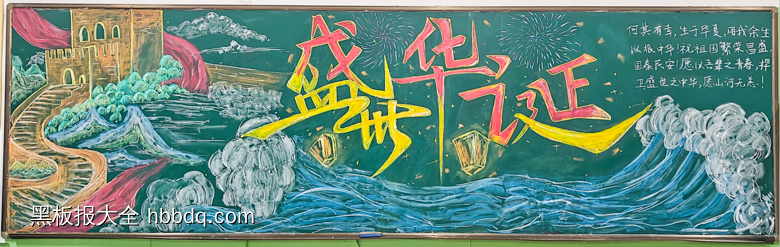 盛世华诞
何其有幸，生于华夏，用我余生
以报中华！祝祖国繁荣昌盛
国泰民安！愿以吾辈之青春，捍
卫盛世之中华，愿山河无恙！
黑板报大全 hbbdq.com